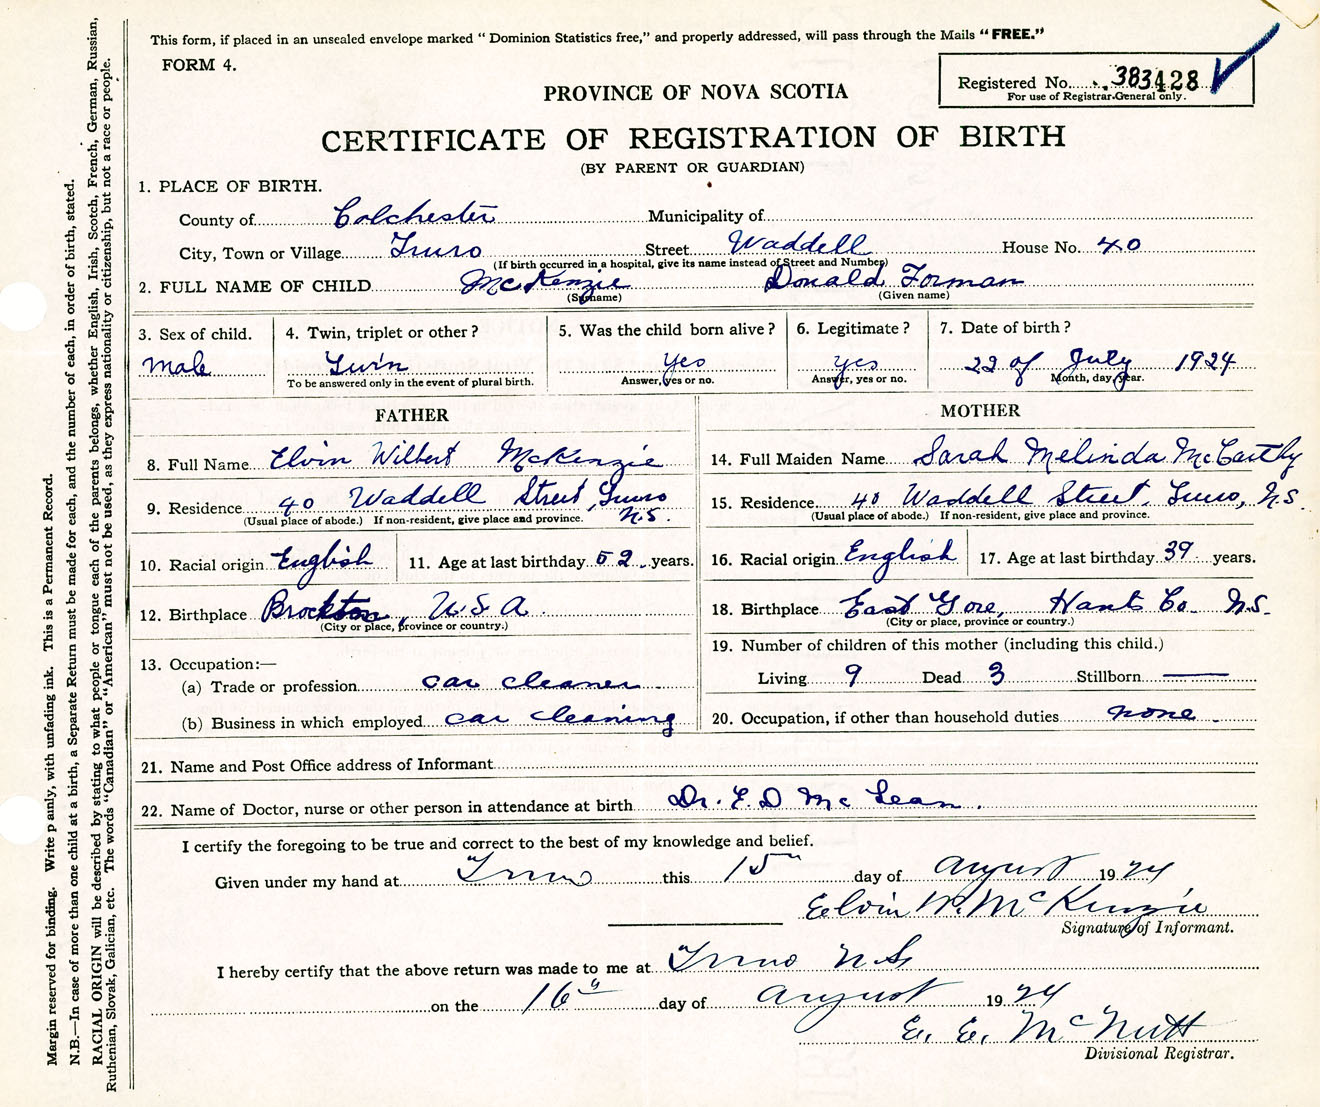 This form, if placed in an unsealed envelope marked " Dominion Statistics free," and properly addressed, will pass through the Mails "FREE."
FORM 4.
Registered No. 383428
For use of Registrar-General only.
PROVINCE OF NOVA SCOTIA
CERTIFICATE OF REGISTRATION OF BIRTH
(BY PARENT OR GUARDIAN)
1. PLACE OF BIRTH.
County of Colchester Municipality of
City, Town or Village Truro Street Waddell House No. 40
(If birth occurred in a hospital, give its name instead of Street and Number)
2. FULL NAME OF CHILD McKenzie Donald Forman
(Surname) (Given name)
3. Sex of child. 4. Twin, triplet or other? 5. Was the child born alive? 6. Legitimate? 7. Date of birth?
Male Twin Yes Yes 22 of July 1924
To be answered only in the event of plural birth. Answer, yes or no. Answer, yes or no. Month, day, year.
FATHER MOTHER
8. Full Name Elvin Wilbert McKenzie 14. Full Maiden Name Sarah Melinda McCarthy
9. Residence 40 Waddell Street, Truro N.S. 15. Residence 40 Waddell Street, Truro, N.S.
(Usual place of abode.) If non-resident, give place and province. (Usual place of abode.) If non-resident, give place and province.
10. Racial origin English 11. Age at last birthday 52 years. 16. Racial origin English 17. Age at last birthday 39 years.
12. Birthplace Brockton, U.S.A. 18. Birthplace East Gore, Hants Co. N.S.
(City or place, province or country.) (City or place, province or country.)
13. Occupation:— 19. Number of children of this mother (including this child.)
(a) Trade or profession car cleaner Living 9 Dead 3 Stillborn —
(b) Business in which employed car cleaning 20. Occupation, if other than household duties none.
21. Name and Post Office address of Informant
22. Name of Doctor, nurse or other person in attendance at birth Dr. F. D McLean.
I certify the foregoing to be true and correct to the best of my knowledge and belief.
Given under my hand at Truro this 15" day of August 1924
Elvin W. McKenzie
Signature of Informant.
I hereby certify that the above return was made to me at Truro N.S
on the 16" day of August 1924
E. E. McNutt
Divisional Registrar.
Margin reserved for binding. Write p anly, with unfading ink. This is a Permanent Record.
N.B.—In case of more than one child at a birth, a Separate Return must be made for each, and the number of each, in order of birth, stated.
RACIAL ORIGIN will be described by stating to what people or tongue each of the parents belongs, whether English, Irish, Scotch, French, German, Russian,
Ruthenian, Slovak, Galician, etc. The words "Canadian" or "American" must not be used, as they express nationality or citizenship, but not a race or people.